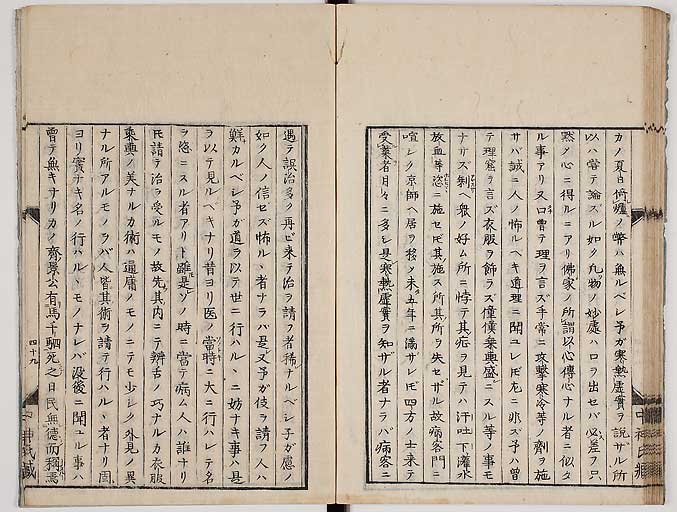 カノ夏日ノ弊ハ無ルベシ予ガ寒熱虚實ヲ説ザル所
以ハ甞テ論ズル如ク凡物ノ妙處ハ口ラ出セバ必差フ只
黙〆心ニ得ルニアリ佛家ノ所謂以心傳心ナル者ニ似タ
ル事アリ又口曽テ理ヲ言ズ手常ニ攻撃寒冷等ノ劑ヲ施
サバ誠ニ人ノ怖ルヘキ道理ニ聞ユレ𪜈左ニ非ズ予ハ曽
テ理窟ヲ言ズ衣服ヲ飾ラズ僮僕乗輿盛ニスル等ノ事モ
ナサズ剰ヘ衆ノ好ム所ニ悖テ其疟ヲ見テハ汗吐下灌水
放血等恣ニ施セ𪜈其施ス所其所ヲ失セザル故痛客門ニ
喧シク京師ヘ居ヲ移〆未五年ニ満ザレ𪜈四方ノ士来テ
受業者月々ニ多シ是寒熱虚實ヲ知ザル者ナラバ痛客ニ
遇テ誤治多ク再ビ来テ治ヲ請フ者稀ナルベシ予ガ慮ノ
如ク人ノ信ゼズ怖ル丶者ナラバ是又予ガ伎ヲ請フ人ハ
鮮カルベシ予ガ道ラ以テ世ニ行ハル丶ニ妨ナキ事ハ是
ラ以テ見ルベキナリ昔ヨリ医ノ當時ニ大ニ行ハレテ名
ヲ恣ニスル者アリト雖是ソノ時ニ當テ病ム人ハ誰ナリ
𪜈請テ治ヲ受ルモノ故先其内ニテ辨舌ノ巧ナルカ衣服
乗輿ノ美ナルカ術ハ通庸ノモノニテモ少シク外見ノ異
ナル所アルモノラバ人皆其術ヲ請テ行ハル丶者ナリ固
ヨリ實ナキ名ノ行ハル丶モノナレバ没後ニ聞ユル事ハ
曽テ無キナリカノ齊景公有馬千駟死之日民無徳而稱焉
四十九
中神氏藏